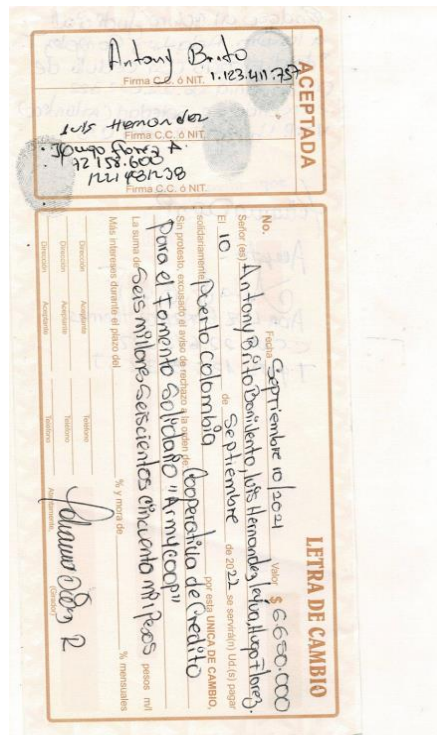 ACEPTADA
Antony Brito
1.123.411.757
Firma C.C. ó NIT.
Luis Hernandez
Firma C.C. ó NIT.
Hugo Florez A.
72158.600
Firma C.C. ó NIT.
LETRA DE CAMBIO
No. Fecha Septiembre 10/2021 Valor $ 6650.000
Señor (es) Antony Brito Bonivento, Luis Hernandez Leyva, Hugo Florez.
El 10 de Septiembre de 2022 se servirá(n) Ud.(s) pagar
solidariamente Puerto Colombia por esta UNICA DE CAMBIO,
Sin protesto, excusado el aviso de rechazo a la orden de: Cooperativa de Credito
Para el Fomento Solidario "Armycoop"
La suma de Seis millones Seiscientos cincuenta mil Pesos pesos m/l
Más intereses durante el plazo del % y mora de % mensuales
Dirección Aceptante Teléfono
Dirección Aceptante Teléfono
Dirección Aceptante Teléfono
Atentamente,
(Girador)